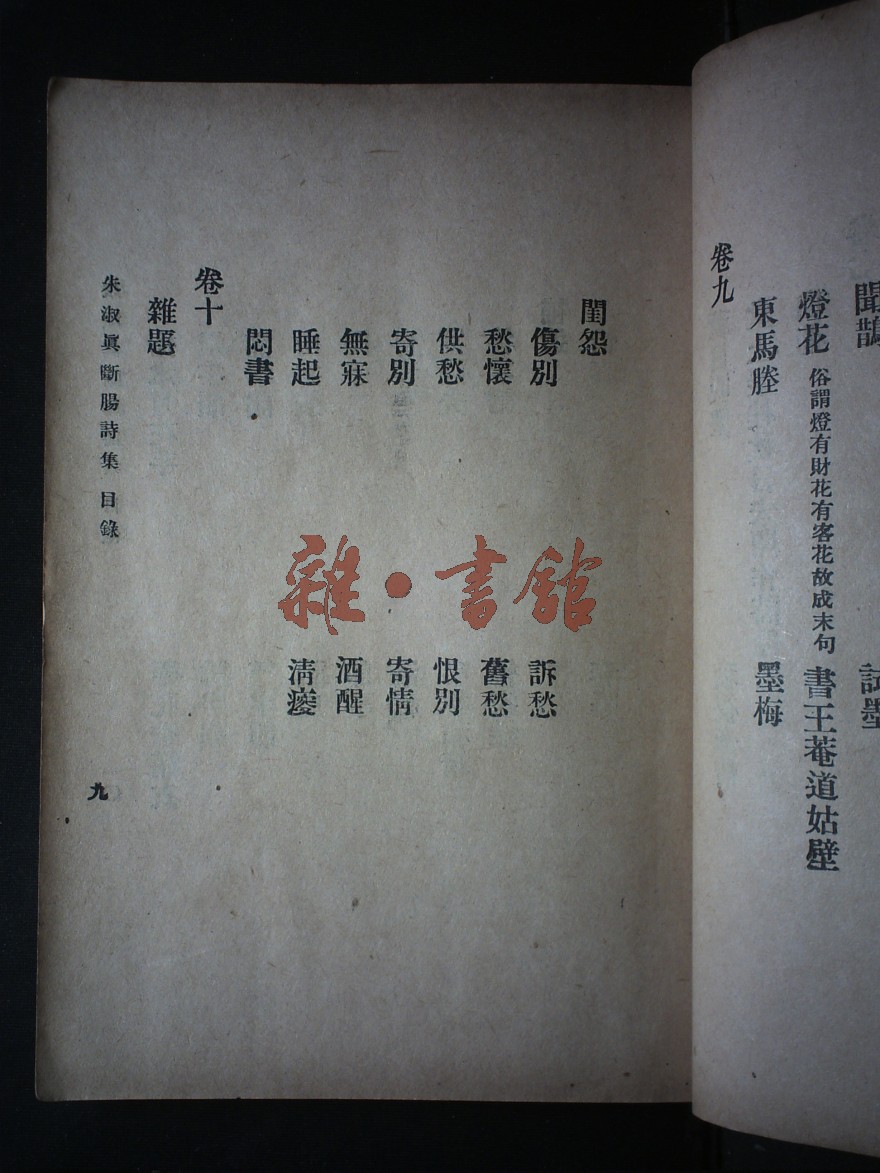 聞鵲 試墨
燈花 俗謂燈有財花有客花故成末句 書王菴道姑壁
東馬塍 墨梅
卷九
閨怨
傷別 訴愁
愁懷 舊愁
供愁 恨別
寄別 寄情
無寐 酒醒
睡起 清瘦
悶書
卷十
雜題
朱淑眞斷腸詩集 目錄 九
雜·書館